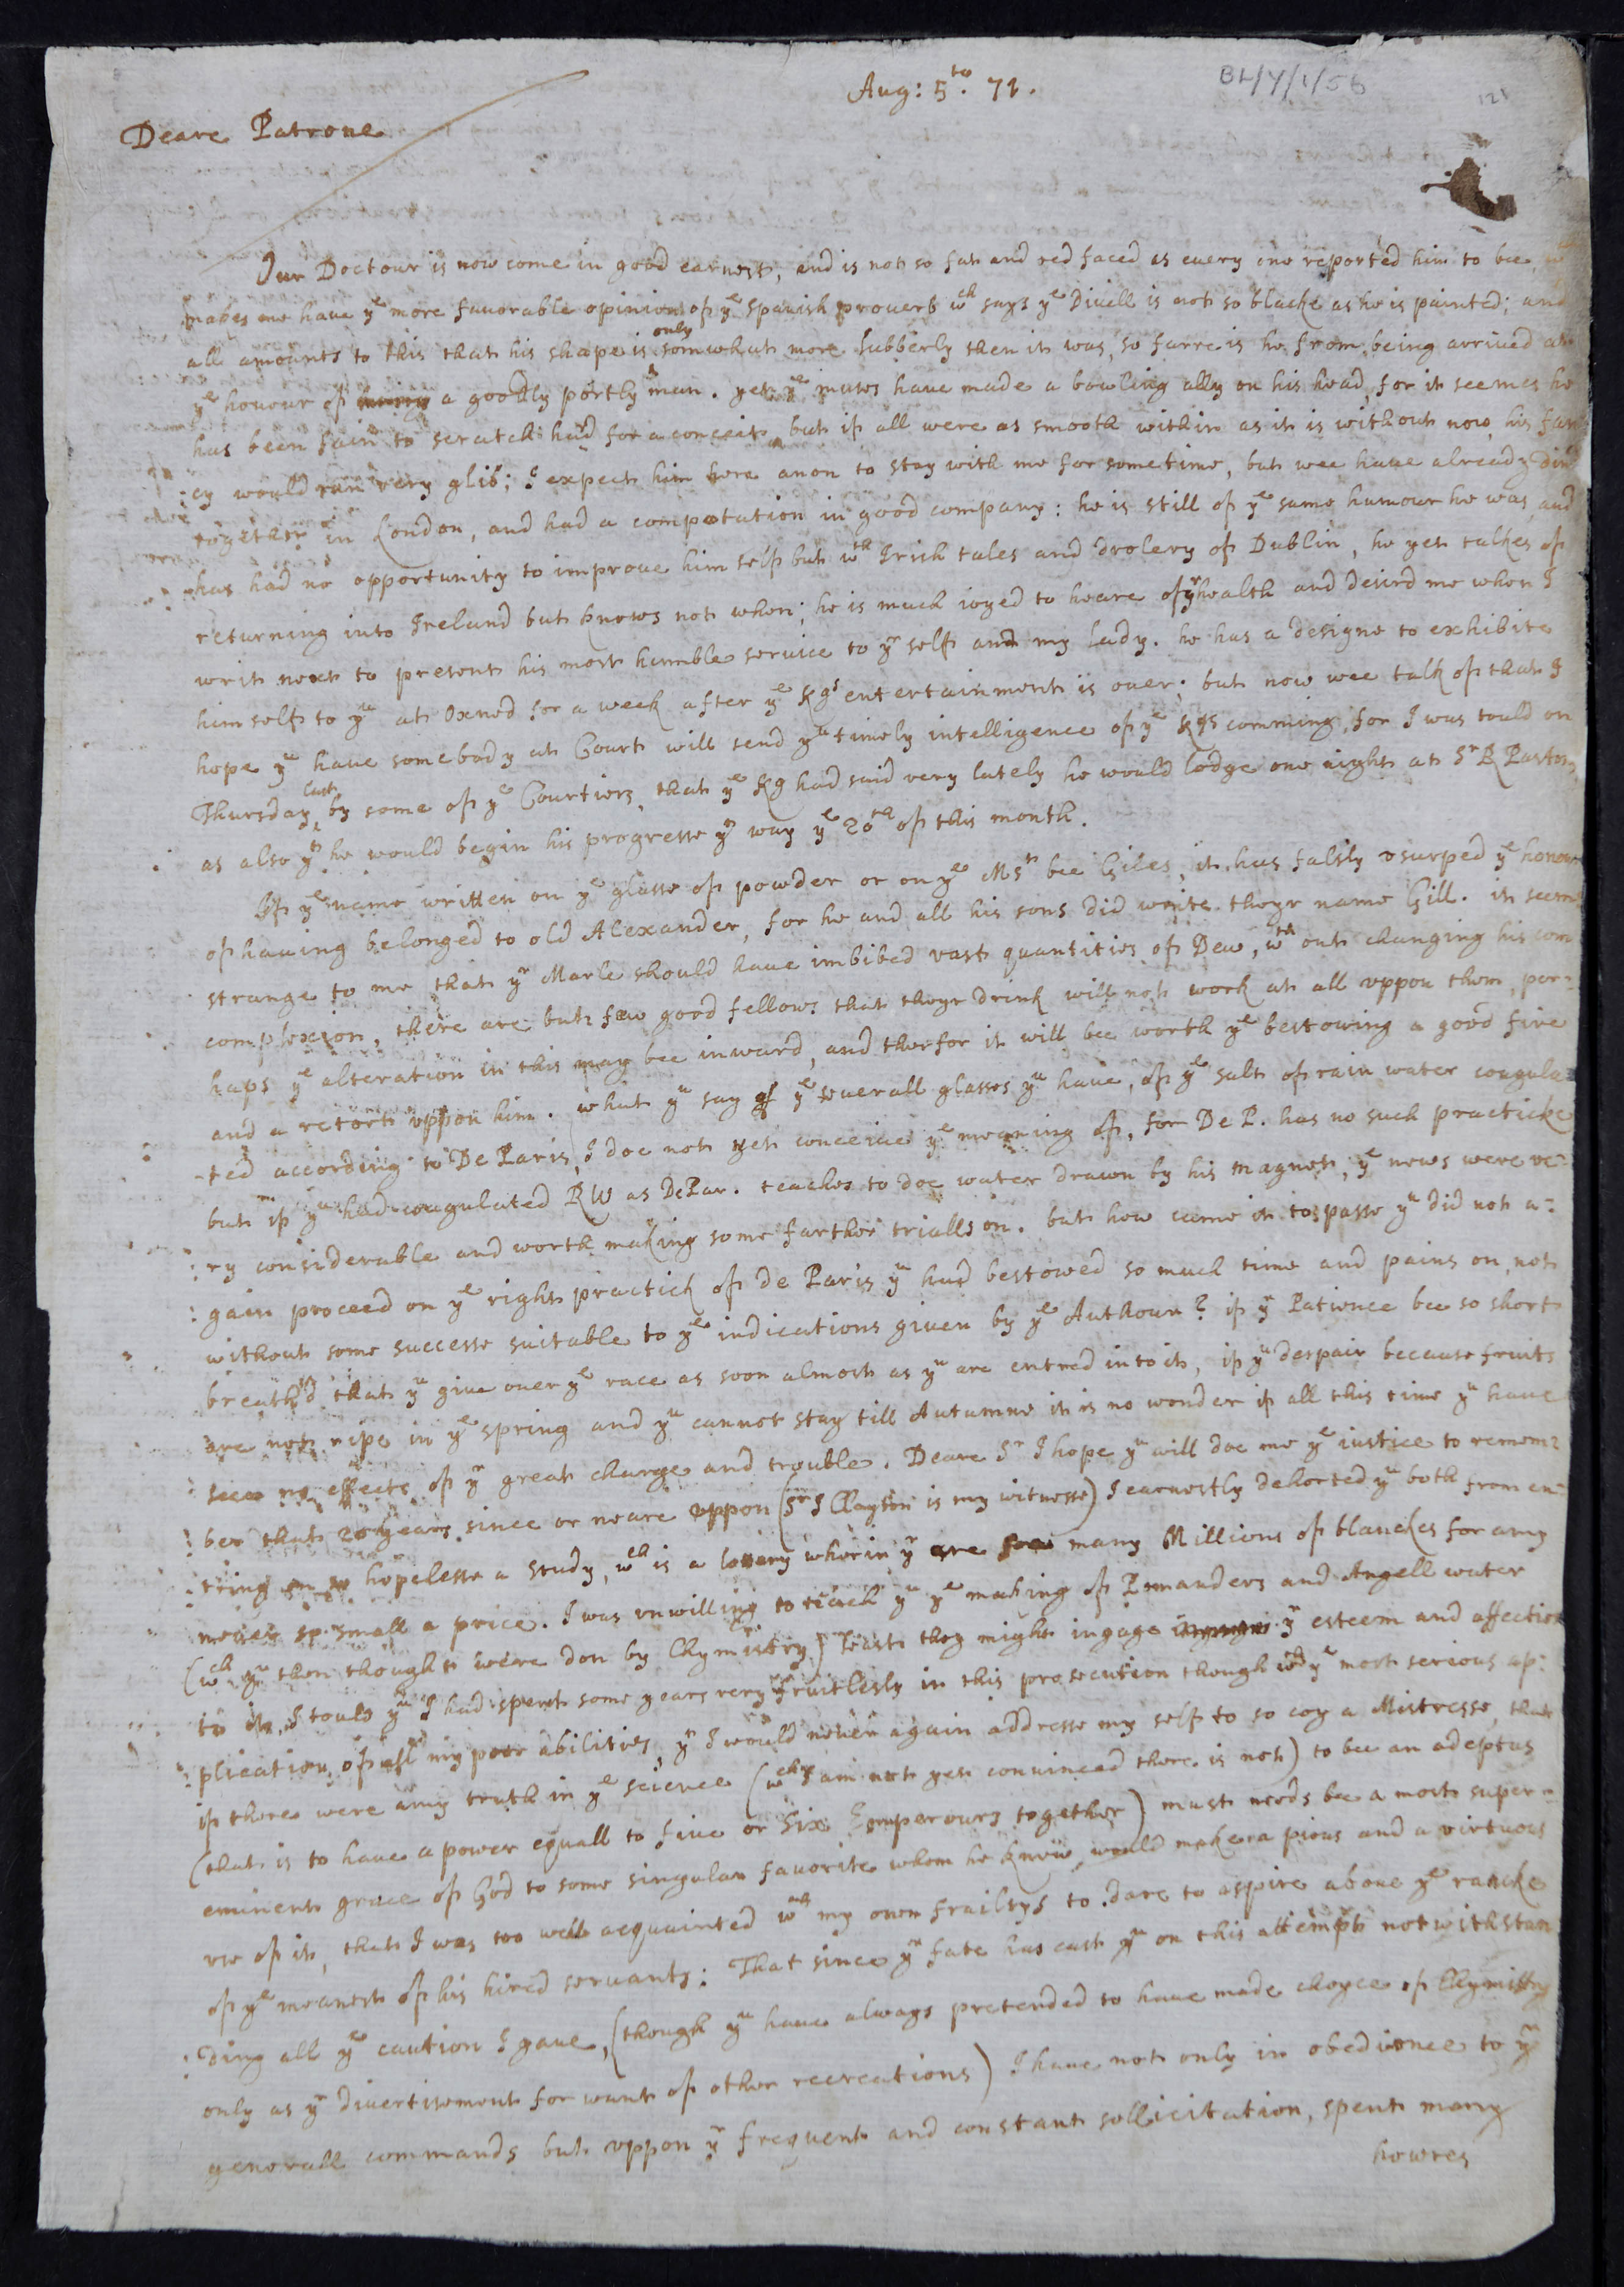 Aug: 5to. 71.
BL/Y/1/56
121
Deare Patrone
Our Doctour is now come in good earnest, and is not so fat and red faced as euery one reported him to bee,
makes me haue ye more fauorable opinion of ye Spanish prouerb wch says ye Diuell is not so blacke as he is painted; and
all amounts to this that his shape is only somwhat more lubberly then it was, so farre is he from being arriued at
ye honour of a goodly portly man. yet ye muses haue made a bowling ally on his head, for it seemes he
has been fain to scratch hard for a conceit, but if all were as smooth within as it is without now, his fan
:cy would run very glib; I expect him here anon to stay with me for some time, but wee haue already din'd
together in London, and had a compotation in good company: he is still of ye same humour he was, and
has had no opportunity to improue him self but wth Irish tales and drolery of Dublin, he yet talkes of
returning into Ireland but knows not when; he is much ioyed to heare of yr health and desird me when I
writ next to present his most humble seruice to yr self and my Lady. he has a designe to exhibite
himself to yu at Oxned for a week after ye Kgs entertainment is ouer; but now wee talk of that I
hope yu haue somebody at Court will send yu timely intelligence of ye Kgs comming, for I was tould on
Thursday last by some of ye Courtiers, that ye Kg had said very lately he would lodge one night at Sr R Pastons
as also yt he would begin his progresse yt way ye 20th of this month.
If ye name written on ye glasse of powder or on ye MSt bee Giles, it has falsly vsurped ye honour
of hauing belonged to old Alexander, for he and all his sons did write theyr name Gill. it seems
strange to me that yr Marle should haue imbibed vast quantities of Dew, wthout changing his com
complexion, there are but few good fellows that theyr drink will not work at all vppon them, per-
haps ye alteration in this may bee inward, and therfor it will bee worth ye bestowing a good fire
and a retort vppon him. what yu say of ye seuerall glasses yu haue, of ye salt of rain water coagula-
-ted according to De Paris, I doe not yet conceiue ye meaning of, for De P. has no such practicke
but if yu had coagulated RW as DePar. teaches to doe water drawn by his magnet, ye news were ve-
:ry considerable and worth making some farther trialls on. but how came it to passe yu did not a:
:gain proceed on ye right practick of de Paris yu had bestowed so much time and pains on, not
without some successe suitable to ye indications giuen by ye Authour? if yr Patience bee so short
breath'd that yu giue ouer ye race as soon almost as yu are entred into it, if yu despair because fruits
are not ripe in ye spring and yu cannot stay till Autumne it is no wonder if all this time yu haue
seen no effects of yr great charge and trouble. Deare Sr I hope yu will doe me ye iustice to remem:
:ber that 20 years since or neare vppon (Sr J Clayton is my witnesse) I earnestly dehorted yu both from en-
:tring on so hopelesse a study, wch is a lottery wherin yr are soe many Millions of blanckes for any
so small a price. I was vnwilling to teach yu ye making of Pomanders and Angell water
(wch yu then thought were don by Chymistry) least they might ingage yr esteem and affection
to it, I tould yu I had spent some years very fruitlesly in this prosecution though wth ye most serious ap:
:plication of all my poor abilities, yt I would neuer again addresse my self to so coy a Mistresse, that
if there were any truth in ye science (wch I am not yet conuinced there is not) to bee an adeptus
(that is to haue a power equall to fiue or six Emperours together) must needs bee a most super-
eminent grace of God to some singular fauorite whom he knew would make a pious and a virtuous
vse of it, that I was too well acquainted wth my own frailtys to dare to aspire aboue ye rancke
of ye meanest of his hired seruants: That since yr fate has cast yu on this attempt notwithstan
:ding all ye caution I gaue, (though yu haue always pretended to haue made choyce of Chymistry
only as yr diuertisement for want of other recreations) I haue not only in obedience to yr
generall commands but vppon yr frequent and constant sollicitation, spent many
howres